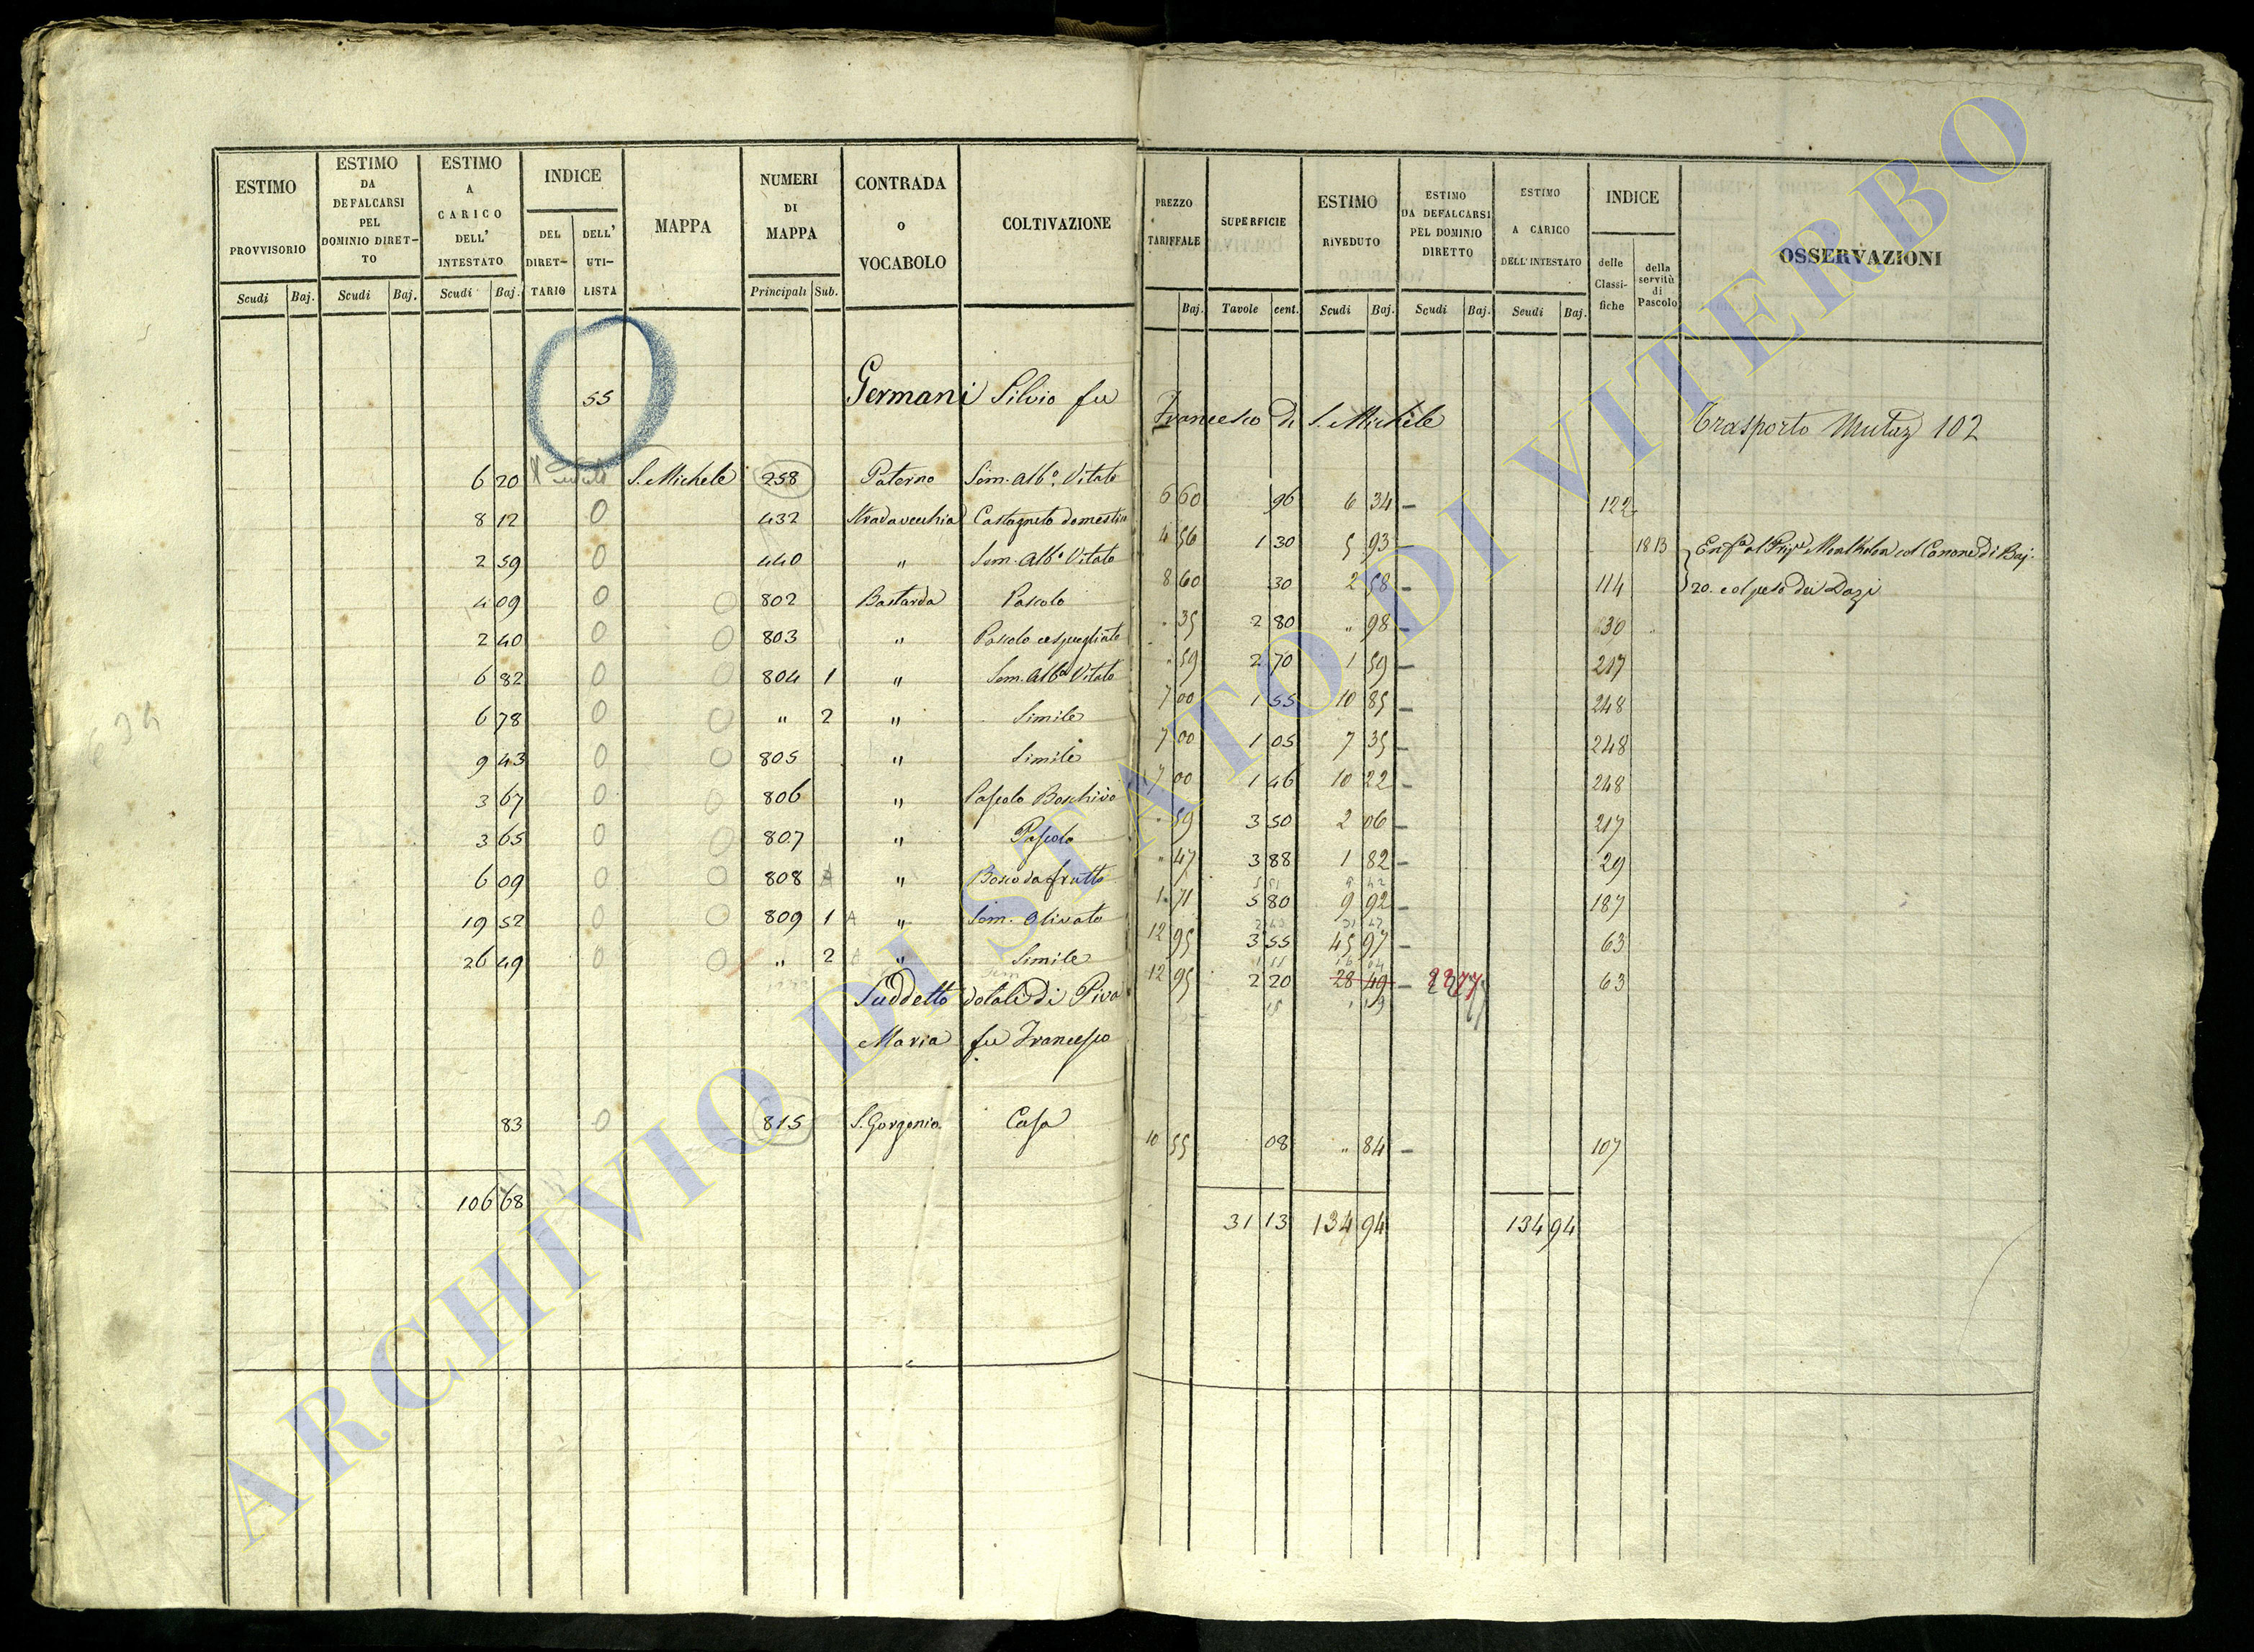 ESTIMO PROVVISORIO Scudi Baj. ESTIMO DA DEFALCARSI PEL DOMINIO DIRET-TO Scudi Baj. ESTIMO A CARICO DELL' INTESTATO Scudi Baj. INDICE DEL DIRET-TARIO DELL' UTI-LISTA MAPPA NUMERI DI MAPPA Principali Sub. CONTRADA O VOCABOLO COLTIVAZIONE PREZZO TARIFFALE Baj. SUPERFICIE Tavole cent. ESTIMO RIVEDUTO Scudi Baj. ESTIMO DA DEFALCARSI PEL DOMINIO DIRETTO Scudi Baj. ESTIMO A CARICO DELL' INTESTATO Scudi Baj. INDICE delle Classi-fiche della servitù di Pascolo OSSERVAZIONI
55 Germani Silvio fu Francesco di S. Michele Trasporto Mutaz 102
6 20 S. Michele 258 Paterno Sem. Alb.º Vitato 6 60 96 6 34 – 122
8 12 0 432 Stradavecchia Castagneto domestico 4 56 1 30 5 93 – 18 13 col Canone di Baj.
2 59 0 440 " Sem. Alb.º Vitato 8 60 30 2 58 – 114 20. col peso dei Dazj
4 09 0 0 802 Bastarda Pascolo " 35 2 80 " 98 – 30
2 40 0 0 803 " Pascolo cespugliato " 59 2 70 1 59 – 217
6 82 0 0 804 1 " Sem. Alb.º Vitato 7 00 1 55 10 85 – 248
6 78 0 0 " 2 " Simile 7 00 1 05 7 35 – 248
9 43 0 0 805 " Simile 7 00 1 46 10 22 – 248
3 67 0 0 806 " Pascolo Boschivo " 59 3 50 2 06 – 217
3 65 0 0 807 " Pascolo " 47 3 88 1 82 – 29
6 09 0 0 808 A " Bosco da frutto 1 71 5 80 9 92 – 187
19 52 0 0 809 1 A " Sem. Olivato 12 95 3 55 45 97 – 63
26 49 0 0 " 2 A " Simile 12 95 2 20 28 49 – 63
Suddetto dotali di Piva
Maria fu Francesco
83 0 815 S. Gorgonio Casa 10 55 08 " 84 – 107
106 68 31 13 134 94 134 94
ARCHIVIO DI STATO DI VITERBO